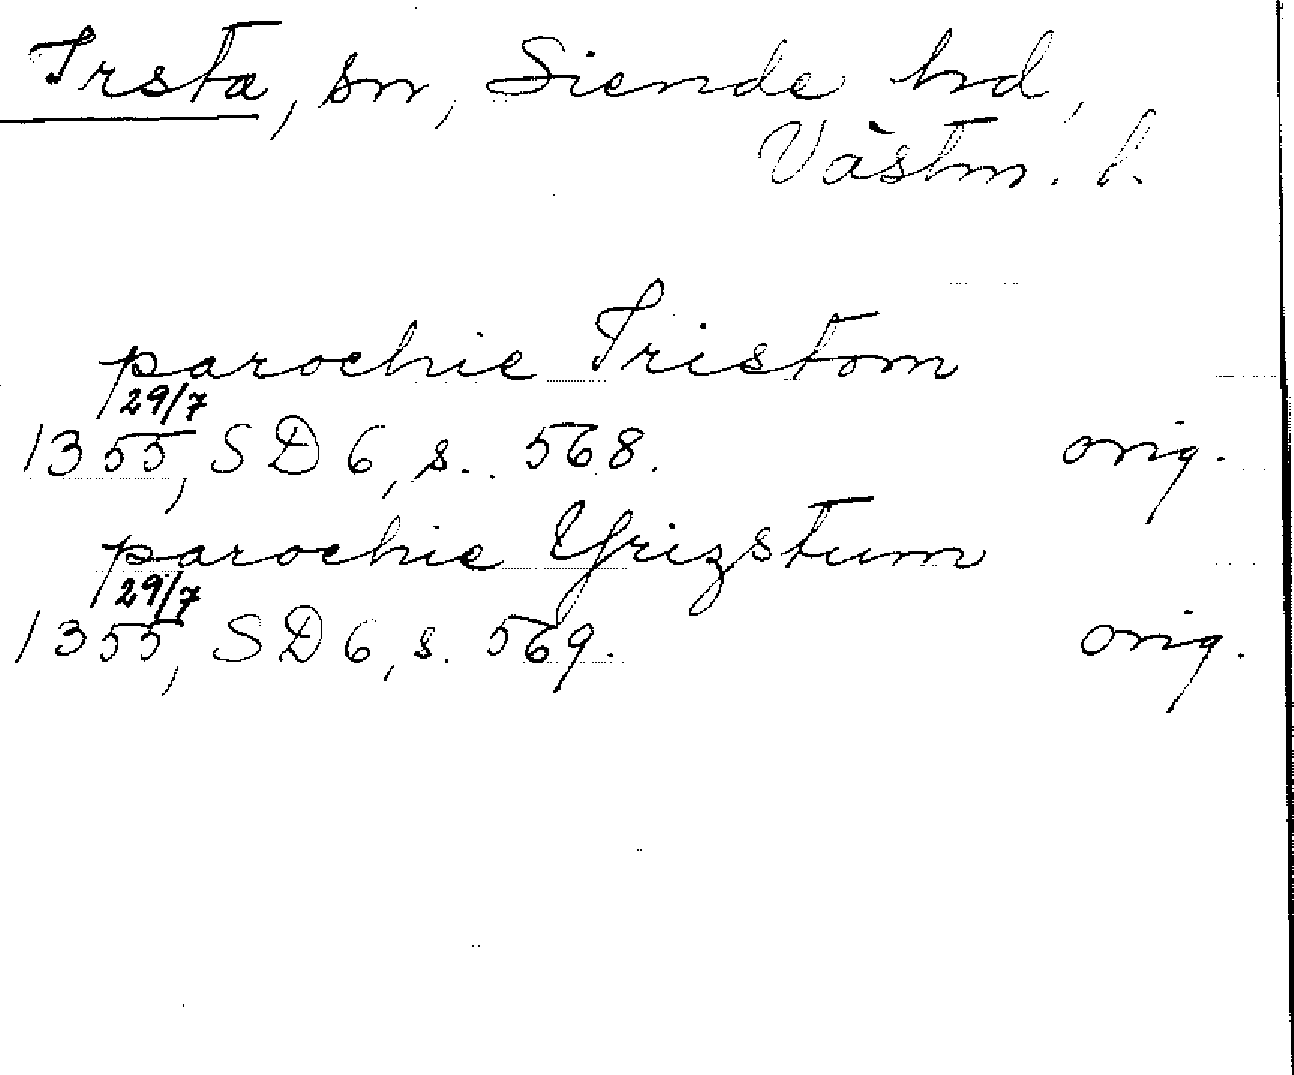 Irsta, sn, Siende hd,
Västm. l.
parochie Iristom
29/7
1355, SD 6, s. 568. orig.
parochie Yrizstum
29/7
1355, SD 6, s. 569. orig.